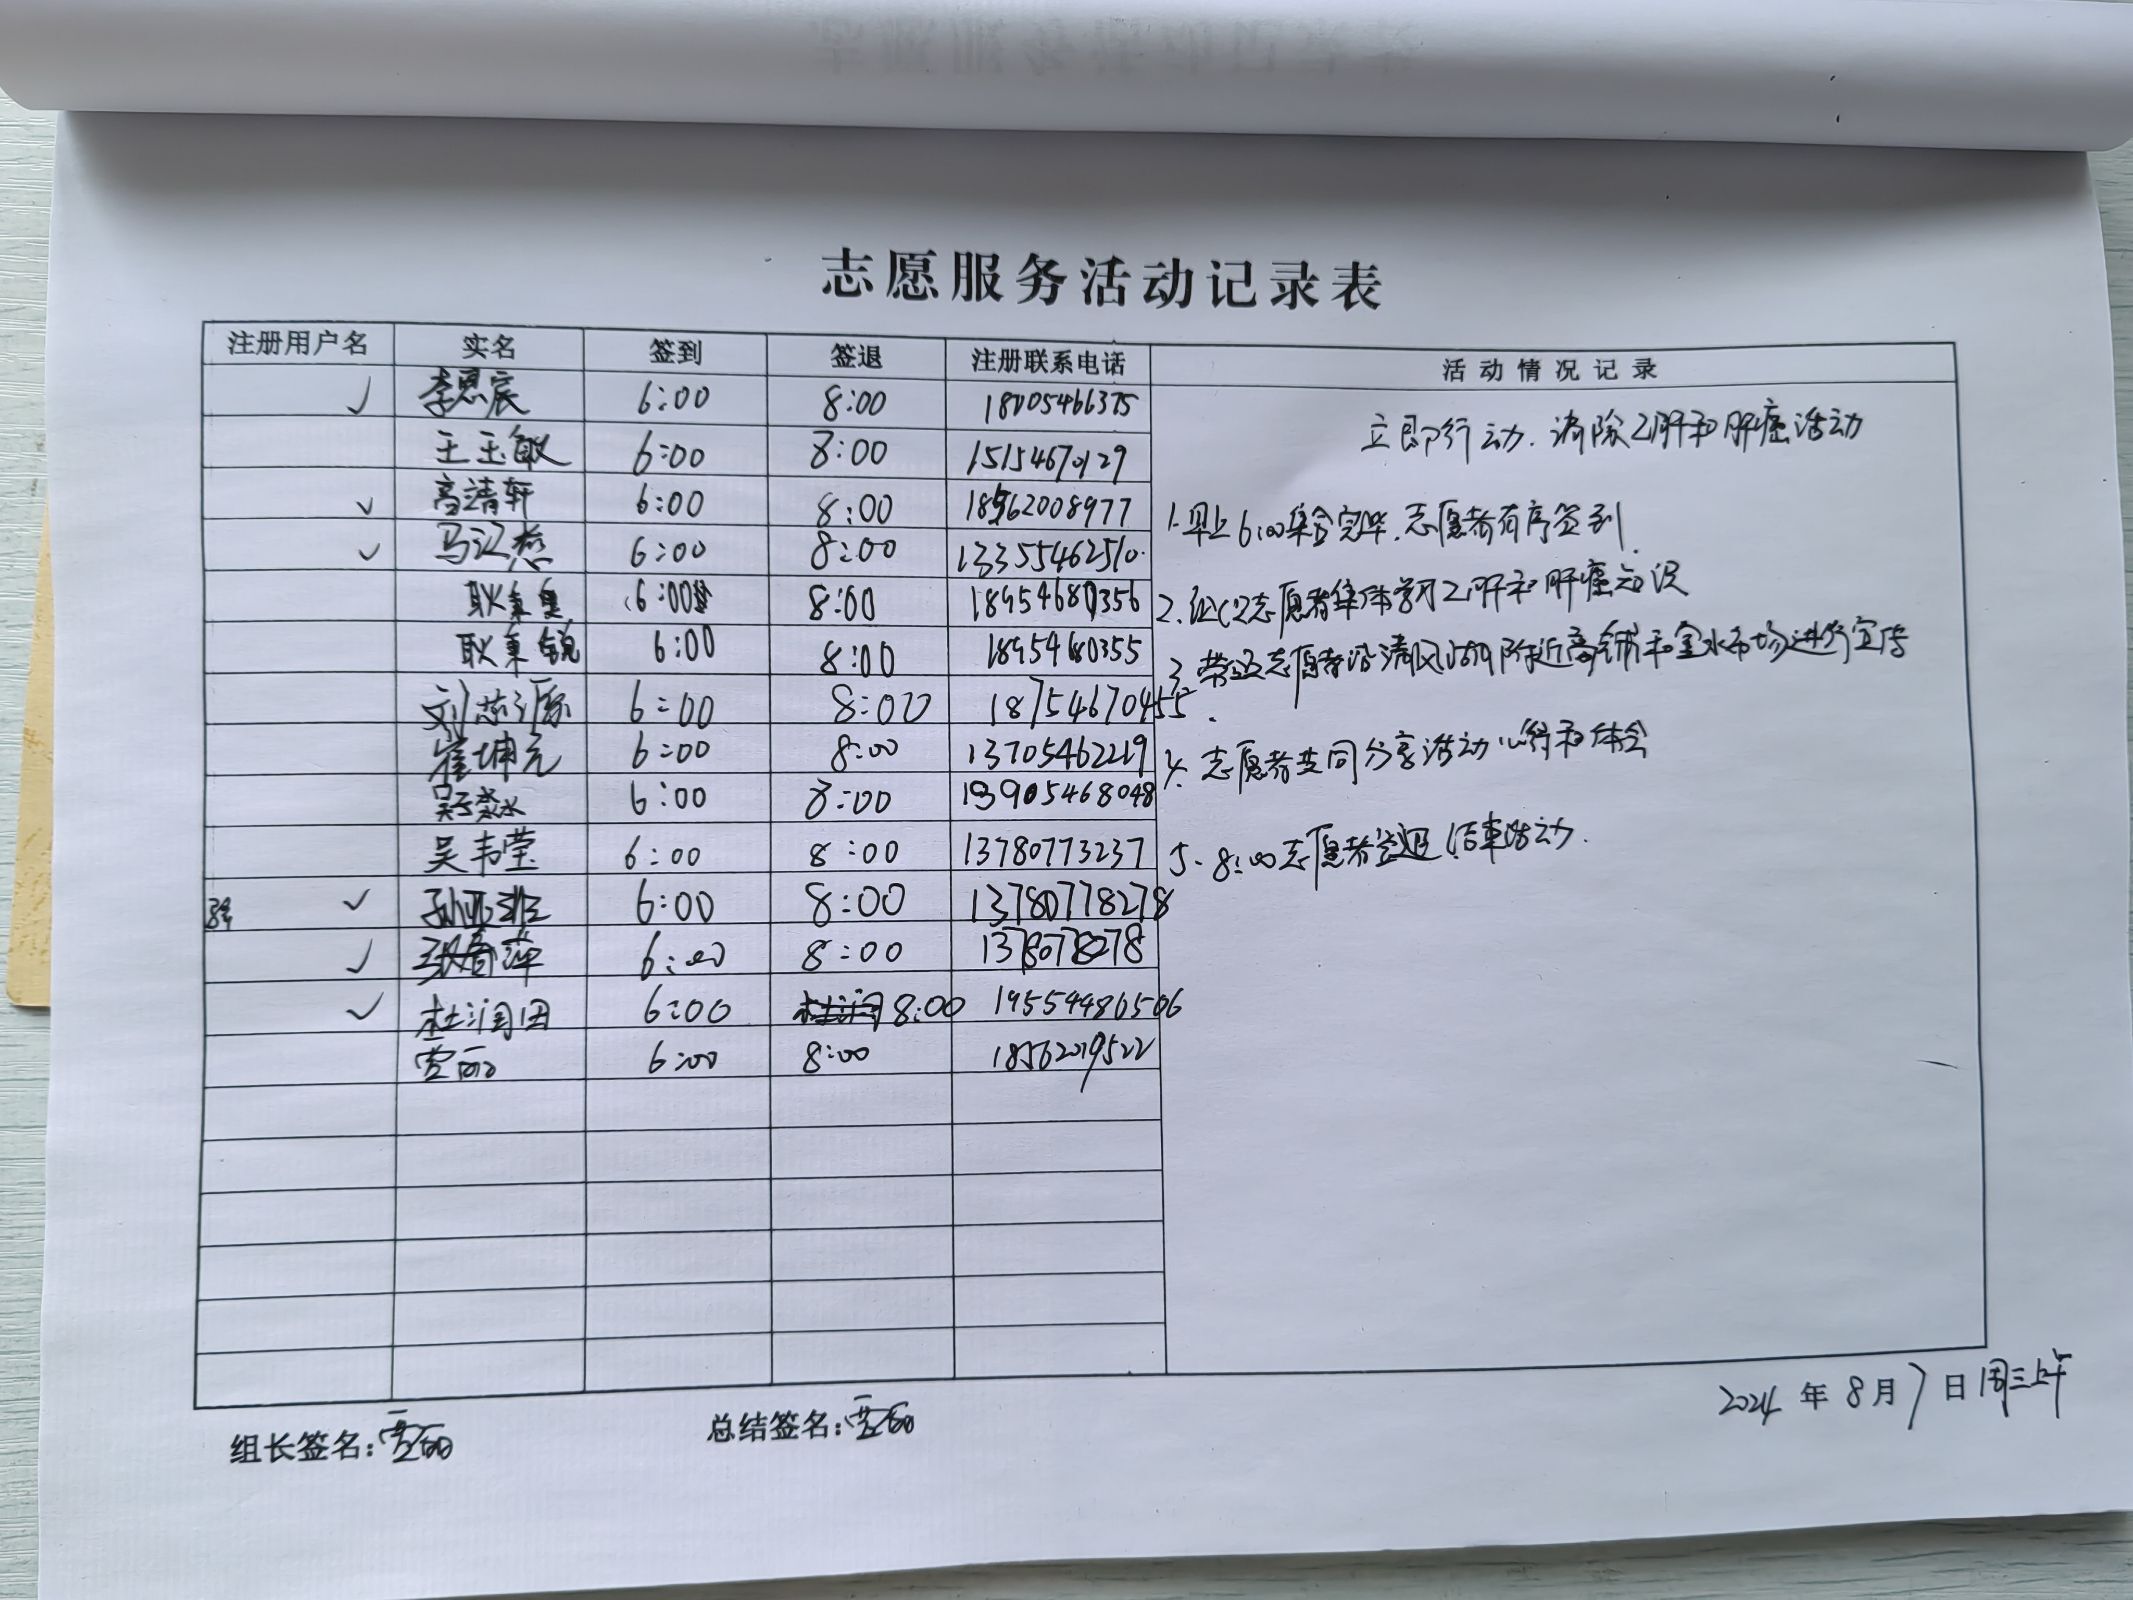 志愿服务活动记录表
注册用户名 实名 签到 签退 注册联系电话 活动情况记录
✓ 李恩宸 6:00 8:00 18005466375
王玉敏 6:00 8:00 15154670129
✓ 高清轩 6:00 8:00 18562008977
✓ 马汉燕 6:00 8:00 13355462510
耿秉皇 6:00 8:00 18954680356
耿秉锐 6:00 8:00 18954680355
刘芯源 6:00 8:00 18754670455
崔坤元 6:00 8:00 13705462219
吴淼 6:00 8:00 13905468048
吴韦莹 6:00 8:00 13780773237
✓ 孙亚 6:00 8:00 13780778278
✓ 张春萍 6:00 8:00 1378078278
✓ 杜润田 6:00 8:00 19554486506
贾丽 6:00 8:00 18562019522
立即行动.消除乙肝和肝癌活动
1.早上6:00集合完毕.志愿者有序签到.
2.组织志愿者集体学习乙肝和肝癌知识
3.带领志愿者沿清风湖附近商铺和金水市场进行宣传.
4.志愿者共同分享活动心得和体会
5.8:00志愿者签退,结束活动.
2024年8月7日周三上午
组长签名:贾丽 总结签名:贾丽